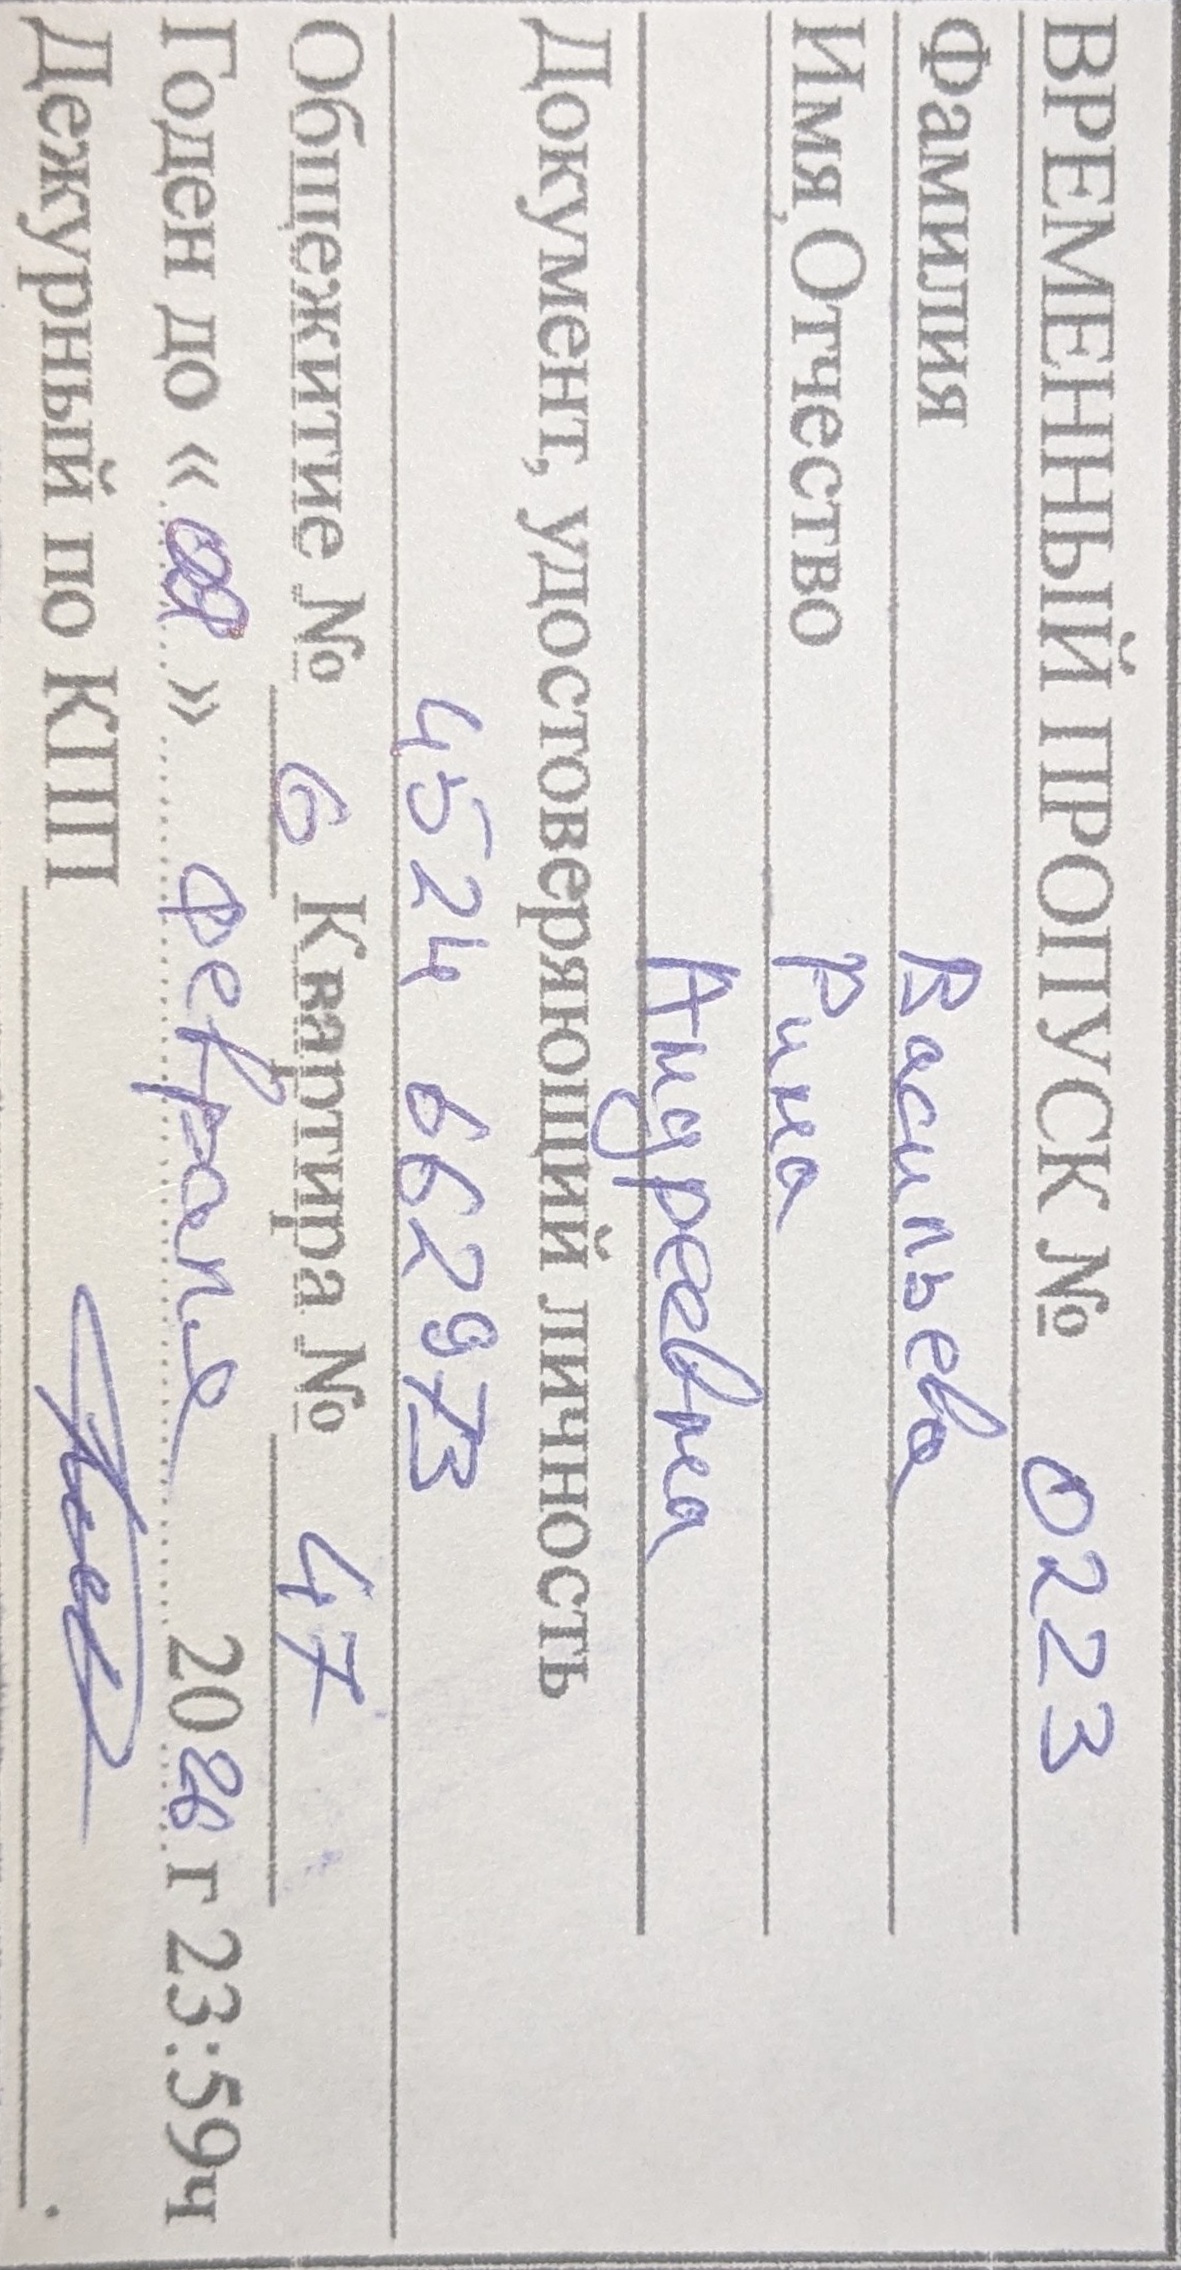 ВРЕМЕННЫЙ ПРОПУСК № 0223
Фамилия Васильева
Имя, Отчество Рина
Андреевна
Документ, удостоверяющий личность
4524 662973
Общежитие № 6 Квартира № 47
Годен до « » февраля 2026 г 23:59ч
Дежурный по КПП